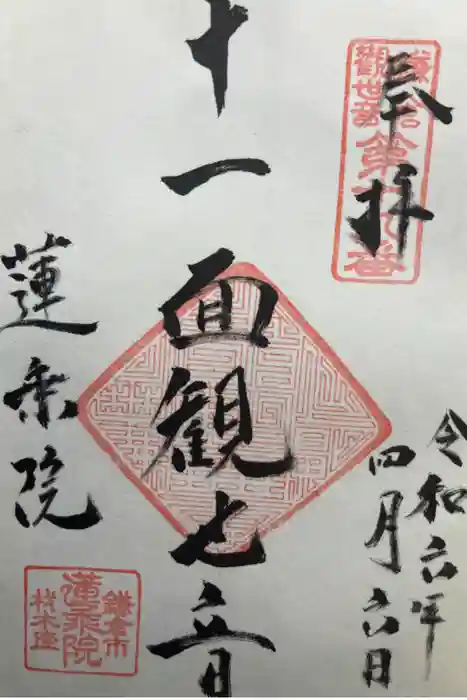 奉拝
鎌倉
觀世音第十九番
令和六年
四月六日
十一面観世音
蓮乗院
鎌倉市
蓮乗院
材木座